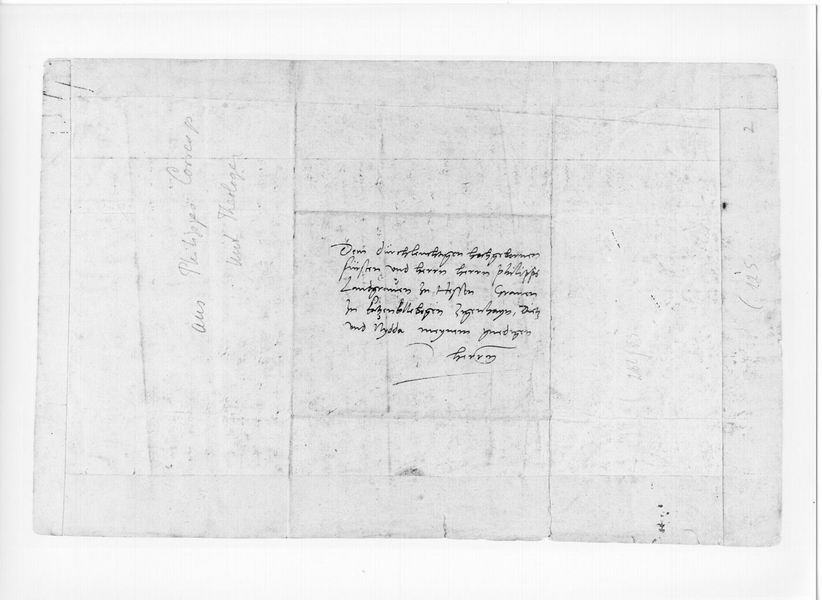 Dem durchleuchtigen hochgebornen
fursten und herrn herrn philipps
Landgraven zu Hessen Graven
zu katzenellebogen Zigenhayn, Dietz
und Nydda meynem gnedigen
herrn
aus Philipps Corresp
mit Theologen
2
125